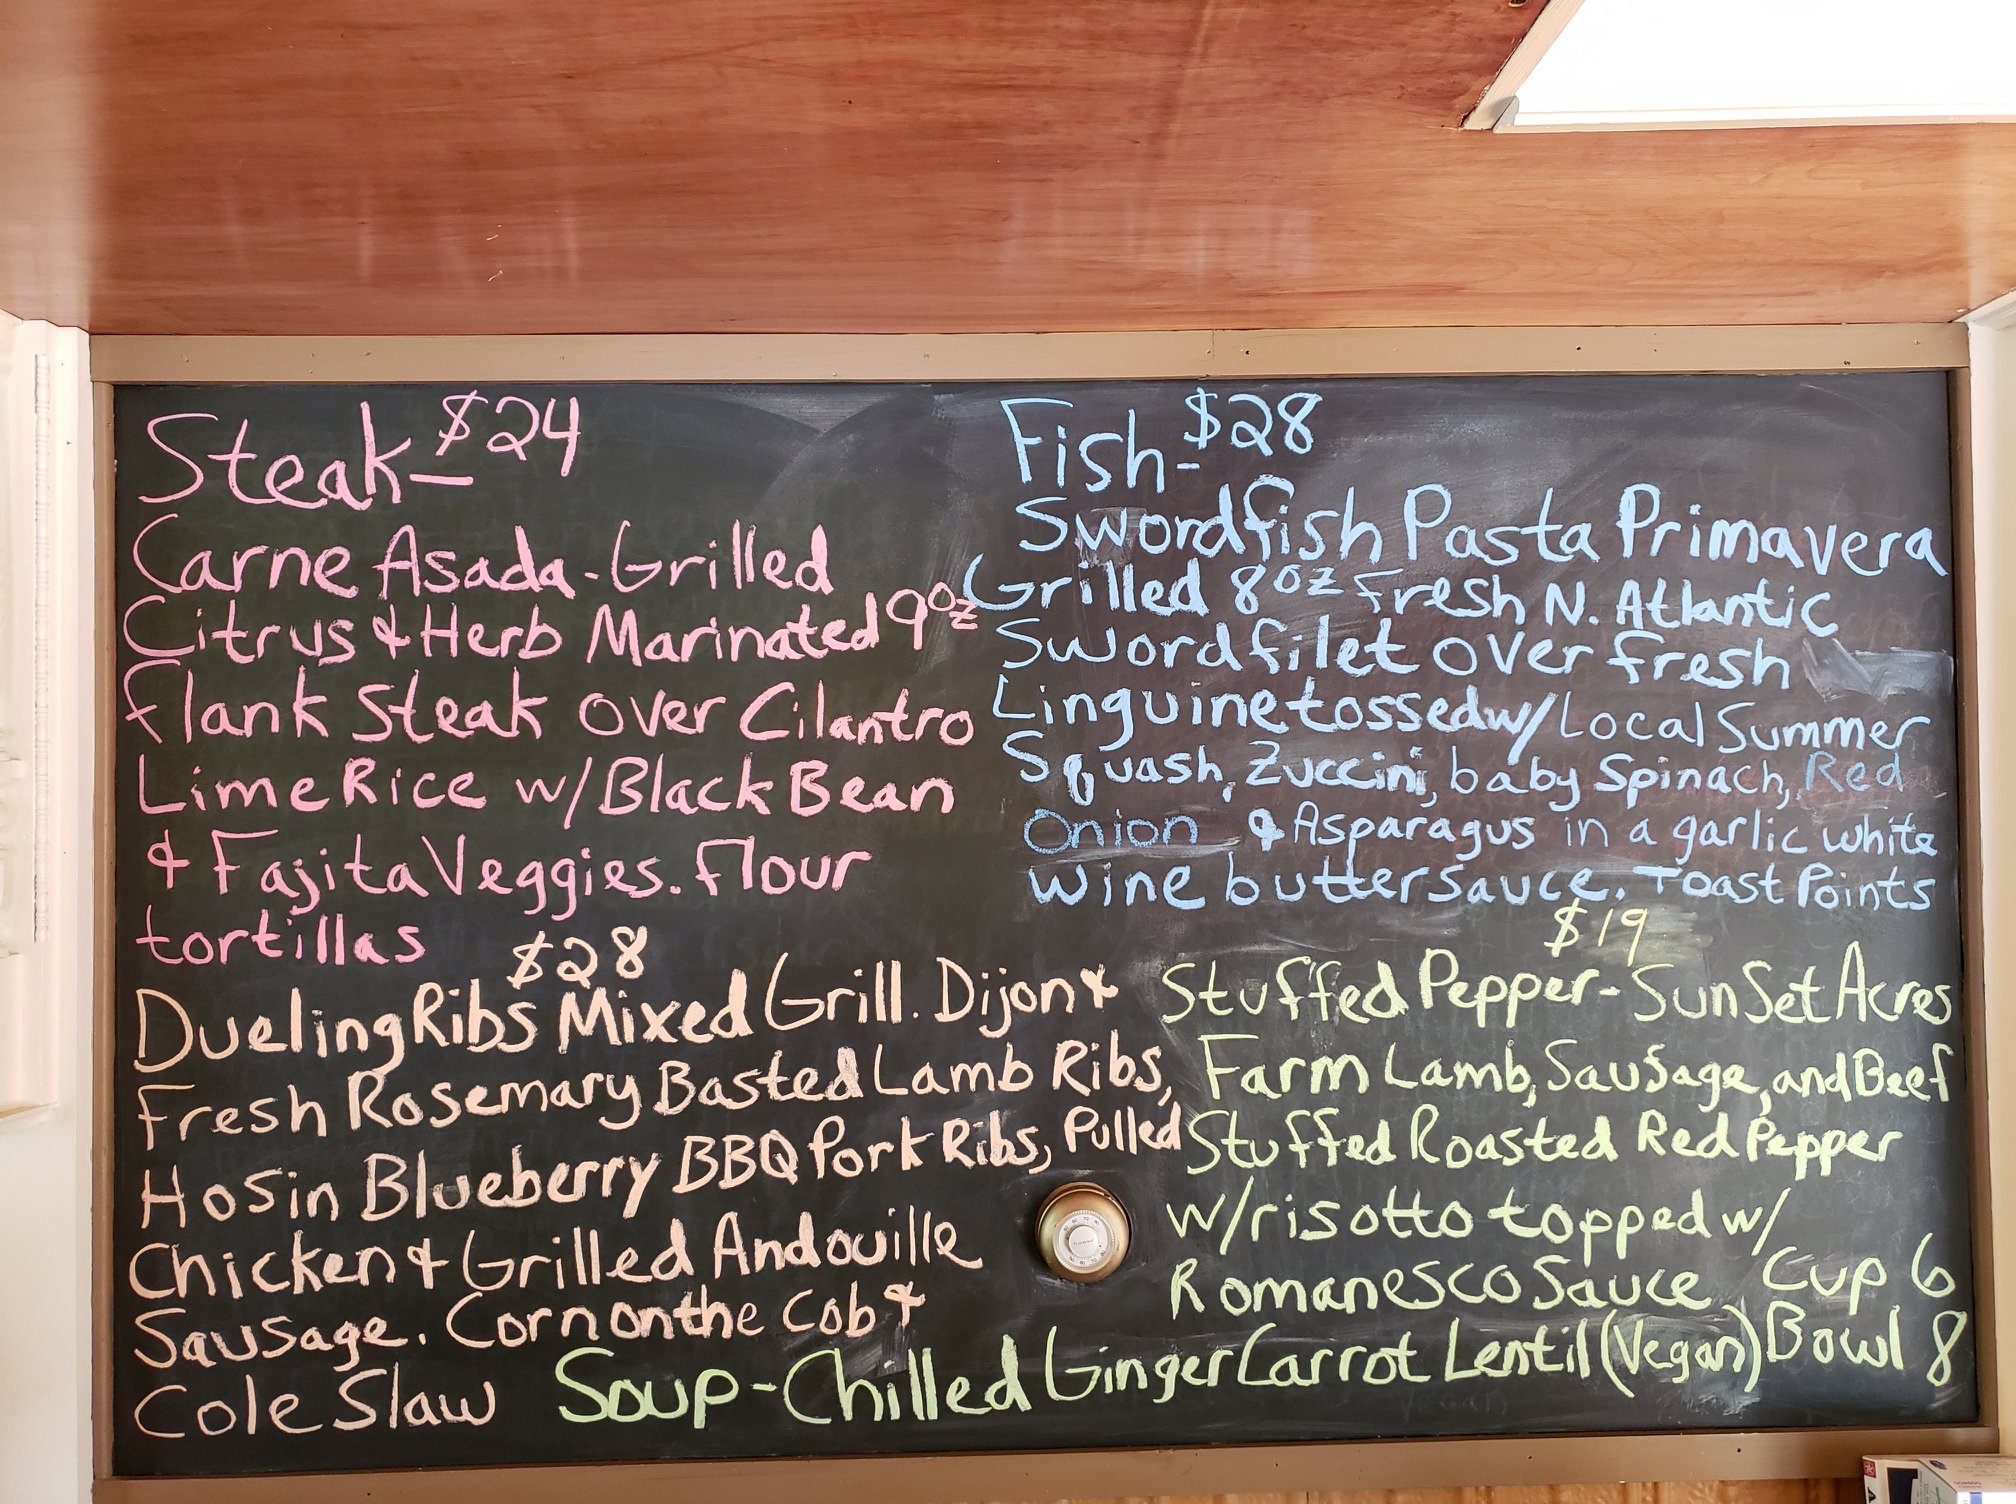 Steak- $24
Carne Asada - Grilled
Citrus & Herb Marinated 9oz
Flank Steak over Cilantro
Lime Rice w/ Black Bean
& Fajita Veggies. Flour
tortillas
Fish- $28
Swordfish Pasta Primavera
Grilled 8oz Fresh N. Atlantic
Sword filet over fresh
Linguine tossed w/ Local Summer
Squash, Zuccini, baby Spinach, Red
Onion & Asparagus in a garlic white
wine butter sauce. Toast Points
$28
Dueling Ribs Mixed Grill. Dijon &
Fresh Rosemary Basted Lamb Ribs,
Hosin Blueberry BBQ Pork Ribs, Pulled
Chicken & Grilled Andouille
Sausage. Corn on the Cob &
Cole Slaw
$19
Stuffed Pepper - SunSet Acres
Farm Lamb, Sausage, and Beef
Stuffed Roasted Red Pepper
w/ risotto topped w/
Romanesco Sauce
Soup - Chilled Ginger Carrot Lentil (Vegan)
Cup 6
Bowl 8